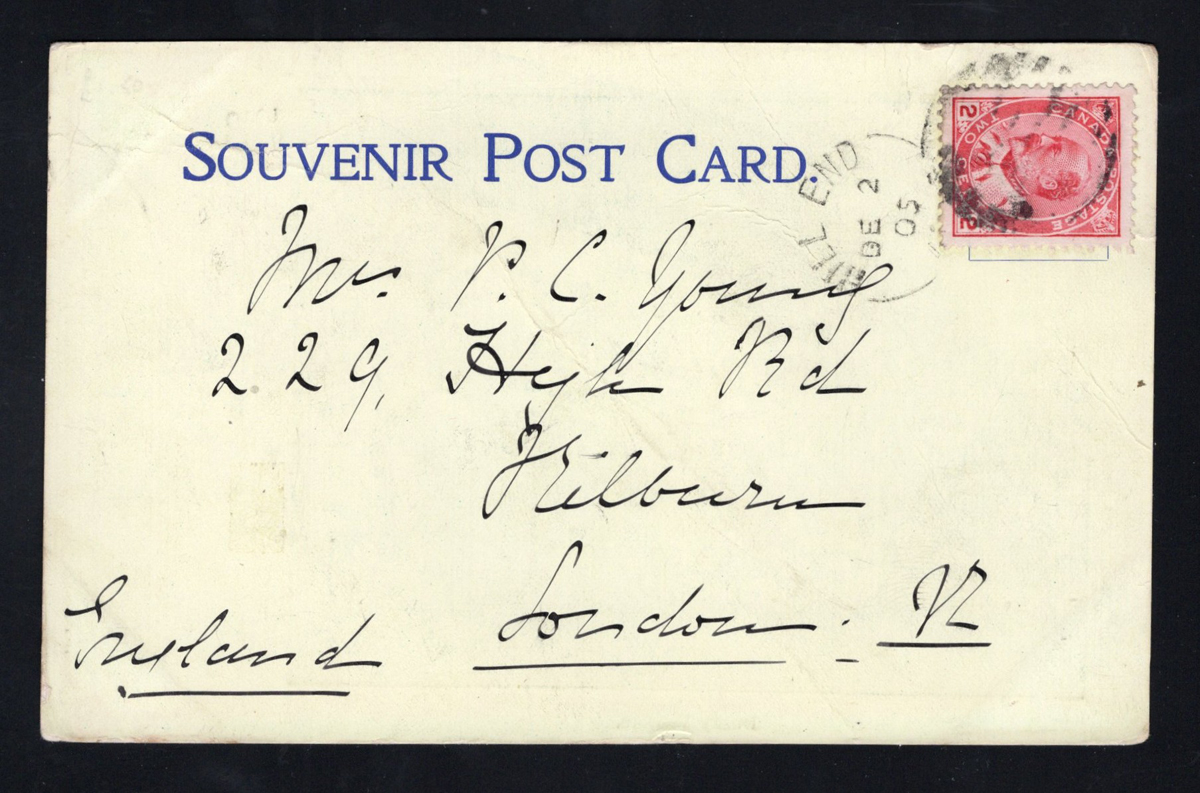 SOUVENIR POST CARD.
HILL END
DE 2
05
CANADA POSTAGE
2 TWO CENTS 2
Mrs. P. C. Young
229, High Rd
Kilburn
London. N
England